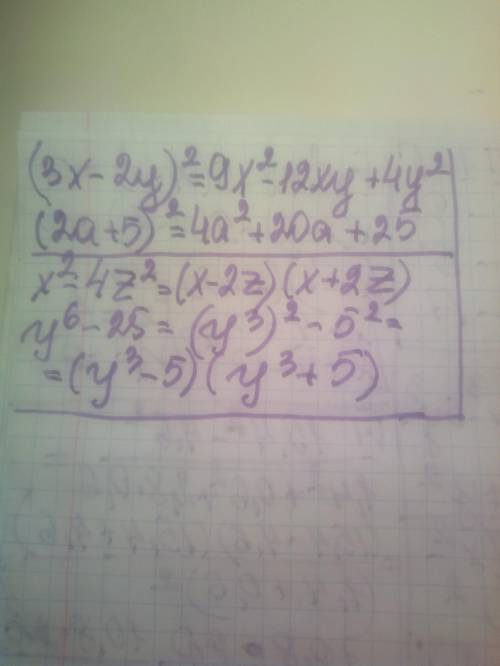 (3x-2y)²=9x²-12xy+4y²
(2a+5)²=4a²+20a+25
x²-4z²=(x-2z)(x+2z)
y⁶-25=(y³)²-5²=
=(y³-5)(y³+5)